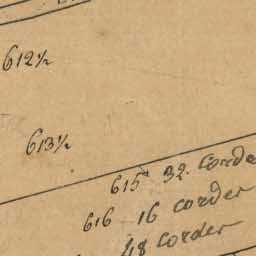 612½
613½
615 32. corde
616 16 corder
48 corder